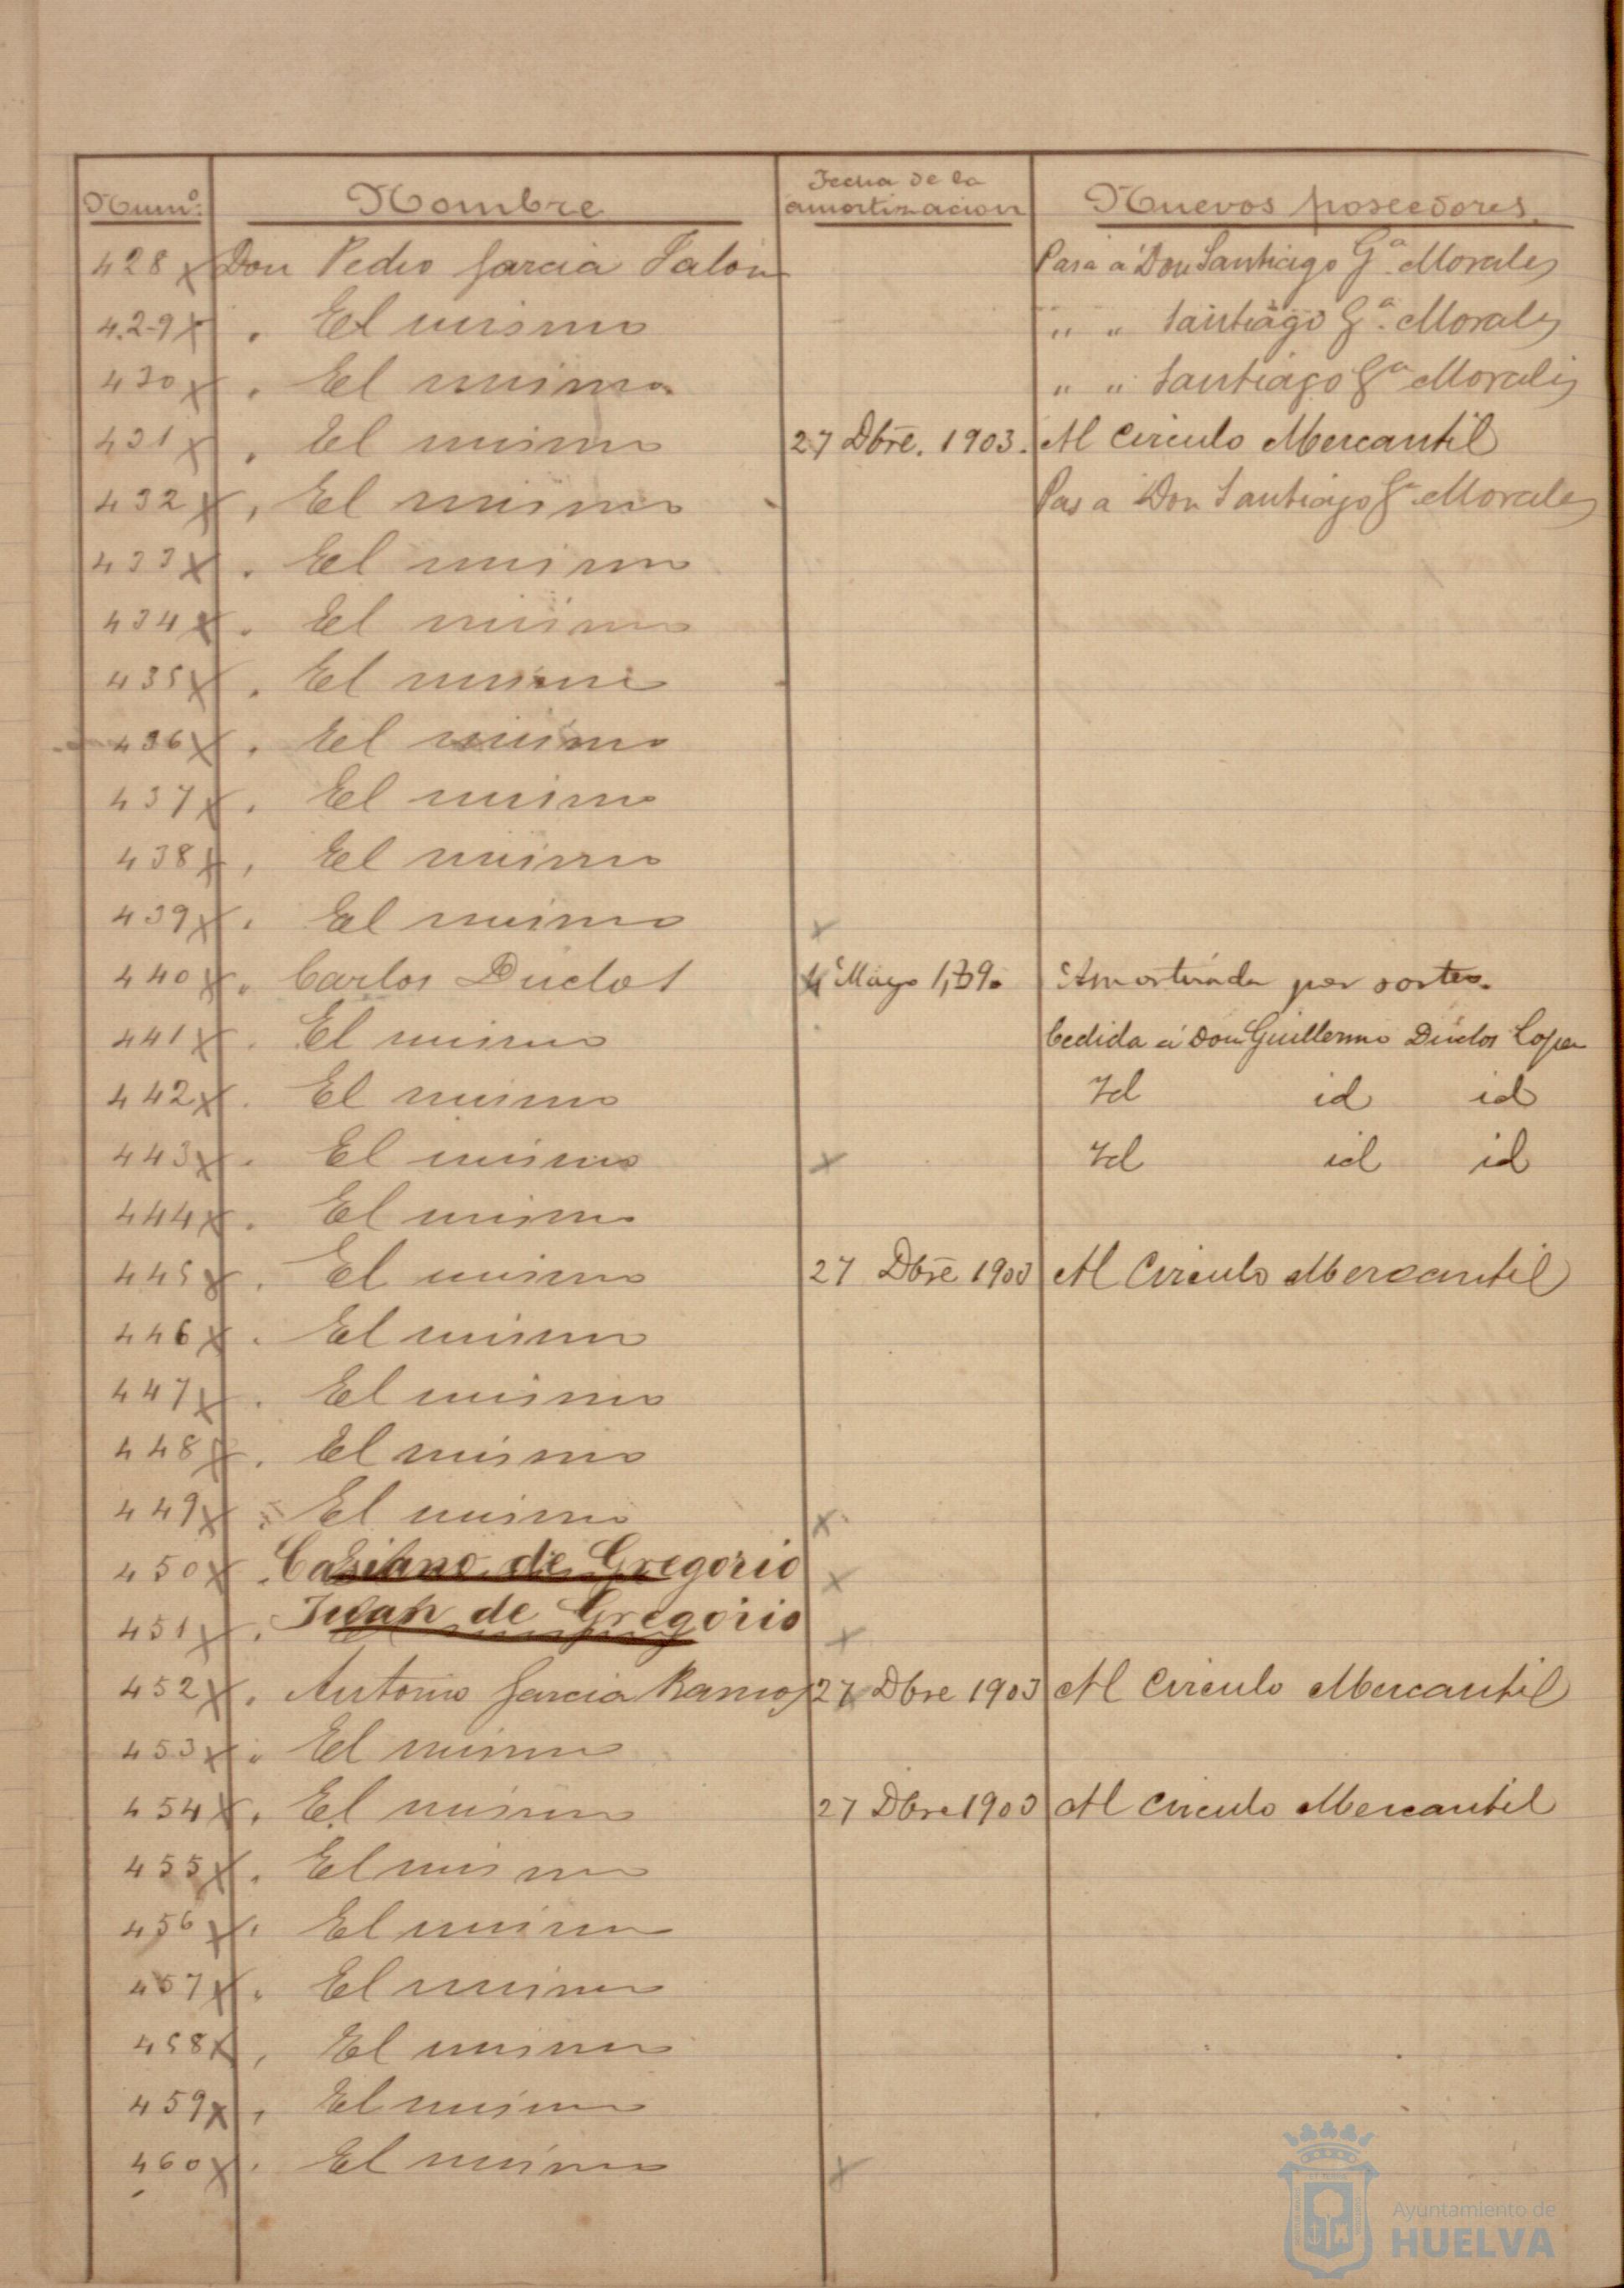 Numº. Nombre Fecha de la amortización Nuevos poseedores.
428 x Don Pedro Garcia Jalon Pasa a Don Santiago Gª. Morales
429 x . El mismo " " Santiago Gª. Morales
430 x . El mismo " " Santiago Gª Morales
431 x . El mismo 27 Dbre. 1903. Al Circulo Mercantil
432 x , El mismo Pas a Don Santiago Gª Morales
433 x . El mismo
434 x . El mismo
435 x . El mismo
436 x . El mismo
437 x . El mismo
438 x , El mismo
439 x . El mismo x
440 x . Carlos Duclos Mayo Amortizada por sorteo.
441 x . El mismo Cedida a Don Guillermo Duclos Lopez
442 x . El mismo Id id id
443 x . El mismo x Id id id
444 x . El mismo
445 x . El mismo 27 Dbre 1903 Al Circulo Mercantil
446 x . El mismo
447 x . El mismo
448 x . El mismo
449 x . El mismo x
450 x . Casiano de Gregorio x
451 x . Juan de Gregorio x
452 x . Antonio Garcia Ramos 27 Dbre 1903 Al Circulo Mercantil
453 x . El mismo
454 x . El mismo 27 Dbre 1903 Al Circulo Mercantil
455 x . El mismo
456 x . El mismo
457 x . El mismo
458 x , El mismo
459 x , El mismo
460 x . El mismo x
Ayuntamiento de
HUELVA